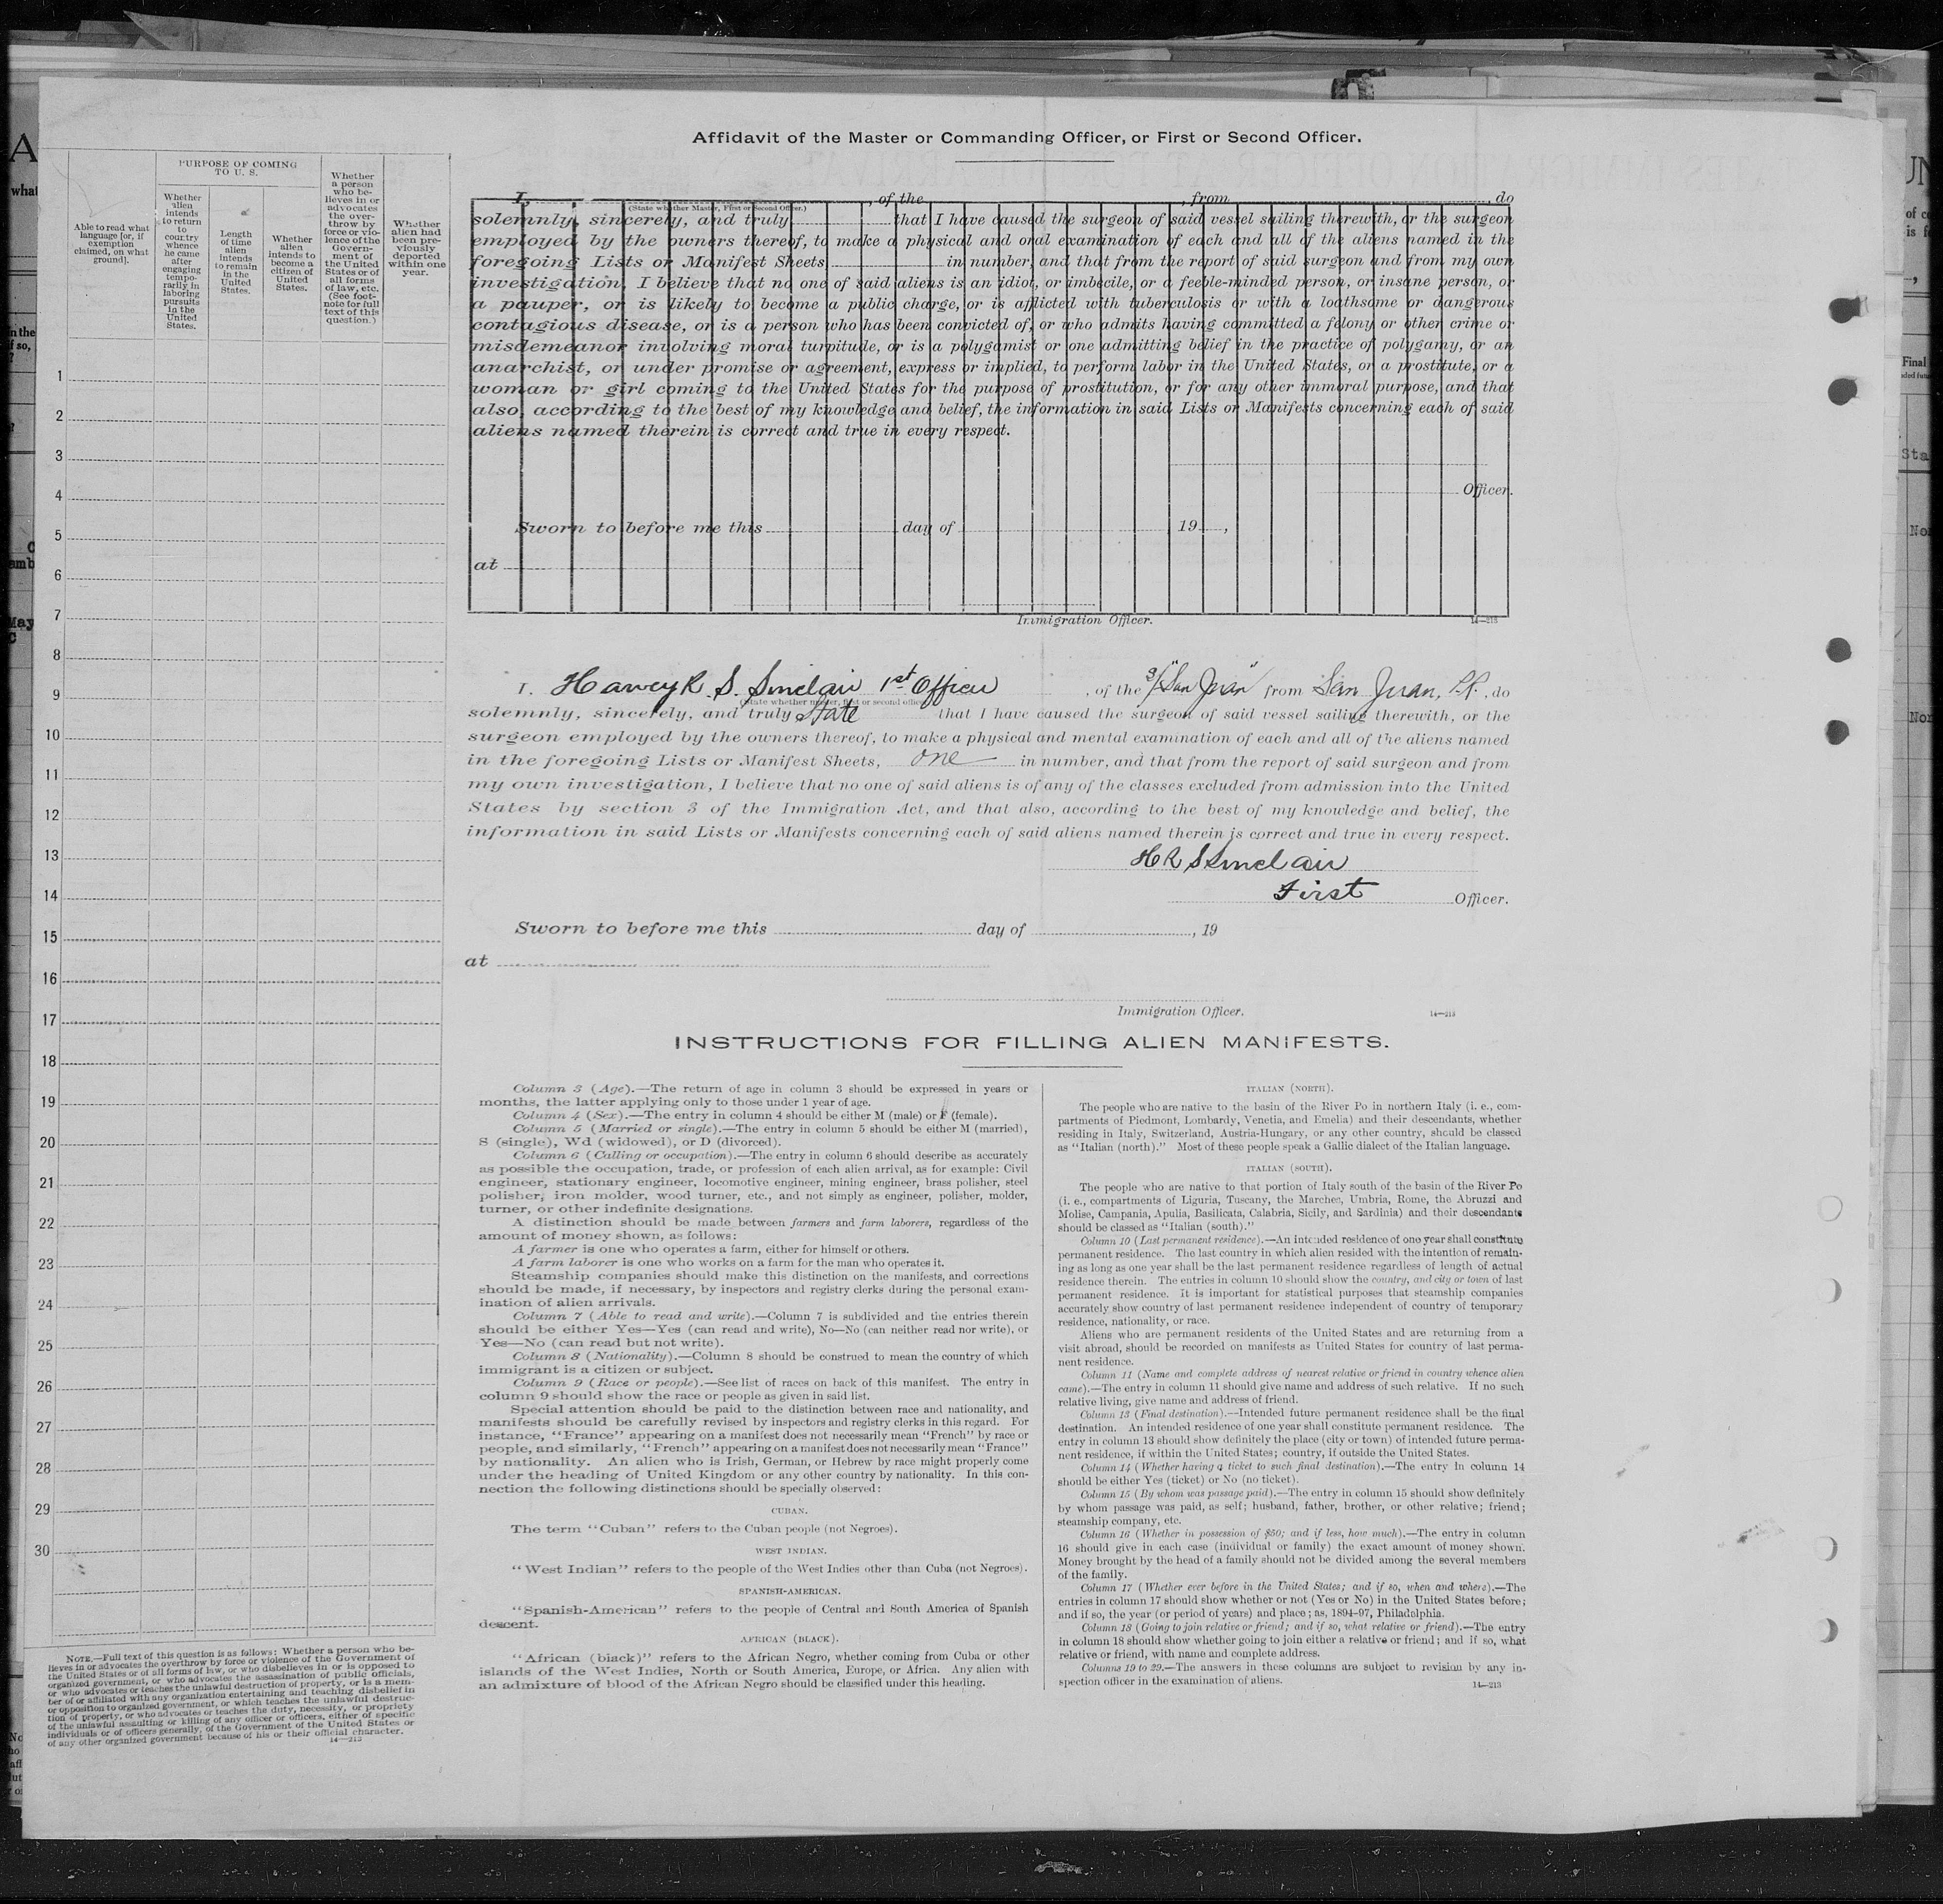 Affidavit of the Master or Commanding Officer, or First or Second Officer.
PURPOSE OF COMING
TO U. S.
Able to read what
language [or, if
exemption
claimed, on what
ground].
Whether
alien
intends
to return
to
country
whence
he came
after
engaging
tempo-
rarily in
laboring
pursuits
in the
United
States.
Length
of time
alien
intends
to remain
in the
United
States.
Whether
alien
intends to
become a
citizen of
United
States.
Whether
a person
who be-
lieves in or
advocates
the over-
throw by
force or vio-
lence of the
Govern-
ment of
the United
States or of
all forms
of law, etc.
(See foot-
note for full
text of this
question.)
Whether
alien had
been pre-
viously
deported
within one
year.
1
2
3
4
5
6
7
8
9
10
11
12
13
14
15
16
17
18
19
20
21
22
23
24
25
26
27
28
29
30
NOTE.—Full text of this question is as follows: Whether a person who be-
lieves in or advocates the overthrow by force or violence of the Government of
the United States or of all forms of law, or who disbelieves in or is opposed to
organized government, or who advocates the assassination of public officials,
or who advocates or teaches the unlawful destruction of property, or is a mem-
ber of or affiliated with any organization entertaining and teaching disbelief in
or opposition to organized government, or which teaches the unlawful destruc-
tion of property, or who advocates or teaches the duty, necessity, or propriety
of the unlawful assaulting or killing of any officer or officers, either of specific
individuals or of officers generally, of the Government of the United States or
of any other organized government because of his or their official character.
14—213
I, , of the , from , do
(State whether Master, First or Second Officer.)
solemnly, sincerely, and truly that I have caused the surgeon of said vessel sailing therewith, or the surgeon
employed by the owners thereof, to make a physical and oral examination of each and all of the aliens named in the
foregoing Lists or Manifest Sheets in number, and that from the report of said surgeon and from my own
investigation, I believe that no one of said aliens is an idiot, or imbecile, or a feeble-minded person, or insane person, or
a pauper, or is likely to become a public charge, or is afflicted with tuberculosis or with a loathsome or dangerous
contagious disease, or is a person who has been convicted of, or who admits having committed a felony or other crime or
misdemeanor involving moral turpitude, or is a polygamist or one admitting belief in the practice of polygamy, or an
anarchist, or under promise or agreement, express or implied, to perform labor in the United States, or a prostitute, or a
woman or girl coming to the United States for the purpose of prostitution, or for any other immoral purpose, and that
also, according to the best of my knowledge and belief, the information in said Lists or Manifests concerning each of said
aliens named therein is correct and true in every respect.
Officer.
Sworn to before me this day of , 19 ,
at
Immigration Officer.
14—213
I, Harvey R. S. Sinclair 1st Officer , of the S/"San Juan" from San Juan, P.R. , do
(State whether master, first or second officer)
solemnly, sincerely, and truly State that I have caused the surgeon of said vessel sailing therewith, or the
surgeon employed by the owners thereof, to make a physical and mental examination of each and all of the aliens named
in the foregoing Lists or Manifest Sheets, one in number, and that from the report of said surgeon and from
my own investigation, I believe that no one of said aliens is of any of the classes excluded from admission into the United
States by section 3 of the Immigration Act, and that also, according to the best of my knowledge and belief, the
information in said Lists or Manifests concerning each of said aliens named therein is correct and true in every respect.
H R S Sinclair
First Officer.
Sworn to before me this day of , 19
at
Immigration Officer.
14—213
INSTRUCTIONS FOR FILLING ALIEN MANIFESTS.
Column 3 (Age).—The return of age in column 3 should be expressed in years or
months, the latter applying only to those under 1 year of age.
Column 4 (Sex).—The entry in column 4 should be either M (male) or F (female).
Column 5 (Married or single).—The entry in column 5 should be either M (married),
S (single), Wd (widowed), or D (divorced).
Column 6 (Calling or occupation).—The entry in column 6 should describe as accurately
as possible the occupation, trade, or profession of each alien arrival, as for example: Civil
engineer, stationary engineer, locomotive engineer, mining engineer, brass polisher, steel
polisher, iron molder, wood turner, etc., and not simply as engineer, polisher, molder,
turner, or other indefinite designations.
A distinction should be made between farmers and farm laborers, regardless of the
amount of money shown, as follows:
A farmer is one who operates a farm, either for himself or others.
A farm laborer is one who works on a farm for the man who operates it.
Steamship companies should make this distinction on the manifests, and corrections
should be made, if necessary, by inspectors and registry clerks during the personal exam-
ination of alien arrivals.
Column 7 (Able to read and write).—Column 7 is subdivided and the entries therein
should be either Yes—Yes (can read and write), No—No (can neither read nor write), or
Yes—No (can read but not write).
Column 8 (Nationality).—Column 8 should be construed to mean the country of which
immigrant is a citizen or subject.
Column 9 (Race or people).—See list of races on back of this manifest. The entry in
column 9 should show the race or people as given in said list.
Special attention should be paid to the distinction between race and nationality, and
manifests should be carefully revised by inspectors and registry clerks in this regard. For
instance, "France" appearing on a manifest does not necessarily mean "French" by race or
people, and similarly, "French" appearing on a manifest does not necessarily mean "France"
by nationality. An alien who is Irish, German, or Hebrew by race might properly come
under the heading of United Kingdom or any other country by nationality. In this con-
nection the following distinctions should be specially observed:
CUBAN.
The term "Cuban" refers to the Cuban people (not Negroes).
WEST INDIAN.
"West Indian" refers to the people of the West Indies other than Cuba (not Negroes).
SPANISH-AMERICAN.
"Spanish-American" refers to the people of Central and South America of Spanish
descent.
AFRICAN (BLACK).
"African (black)" refers to the African Negro, whether coming from Cuba or other
islands of the West Indies, North or South America, Europe, or Africa. Any alien with
an admixture of blood of the African Negro should be classified under this heading.
ITALIAN (NORTH).
The people who are native to the basin of the River Po in northern Italy (i. e., com-
partments of Piedmont, Lombardy, Venetia, and Emelia) and their descendants, whether
residing in Italy, Switzerland, Austria-Hungary, or any other country, should be classed
as "Italian (north)." Most of these people speak a Gallic dialect of the Italian language.
ITALIAN (SOUTH).
The people who are native to that portion of Italy south of the basin of the River Po
(i. e., compartments of Liguria, Tuscany, the Marches, Umbria, Rome, the Abruzzi and
Molise, Campania, Apulia, Basilicata, Calabria, Sicily, and Sardinia) and their descendants
should be classed as "Italian (south)."
Column 10 (Last permanent residence).—An intended residence of one year shall constitute
permanent residence. The last country in which alien resided with the intention of remain-
ing as long as one year shall be the last permanent residence regardless of length of actual
residence therein. The entries in column 10 should show the country, and city or town of last
permanent residence. It is important for statistical purposes that steamship companies
accurately show country of last permanent residence independent of country of temporary
residence, nationality, or race.
Aliens who are permanent residents of the United States and are returning from a
visit abroad, should be recorded on manifests as United States for country of last perma-
nent residence.
Column 11 (Name and complete address of nearest relative or friend in country whence alien
came).—The entry in column 11 should give name and address of such relative. If no such
relative living, give name and address of friend.
Column 13 (Final destination).—Intended future permanent residence shall be the final
destination. An intended residence of one year shall constitute permanent residence. The
entry in column 13 should show definitely the place (city or town) of intended future perma-
nent residence, if within the United States; country, if outside the United States.
Column 14 (Whether having a ticket to such final destination).—The entry in column 14
should be either Yes (ticket) or No (no ticket).
Column 15 (By whom was passage paid).—The entry in column 15 should show definitely
by whom passage was paid, as self; husband, father, brother, or other relative; friend;
steamship company, etc.
Column 16 (Whether in possession of $50; and if less, how much).—The entry in column
16 should give in each case (individual or family) the exact amount of money shown.
Money brought by the head of a family should not be divided among the several members
of the family.
Column 17 (Whether ever before in the United States; and if so, when and where).—The
entries in column 17 should show whether or not (Yes or No) in the United States before;
and if so, the year (or period of years) and place; as, 1894-97, Philadelphia.
Column 18 (Going to join relative or friend; and if so, what relative or friend).—The entry
in column 18 should show whether going to join either a relative or friend; and if so, what
relative or friend, with name and complete address.
Columns 19 to 29.—The answers in these columns are subject to revision by any in-
spection officer in the examination of aliens.
14—213